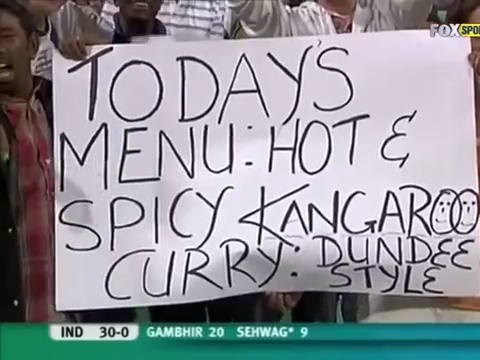 FOX SPO
TODAY'S
MENU: HOT &
SPICY KANGAROO
CURRY: DUNDEE
STYLE
IND 30-0 GAMBHIR 20 SEHWAG* 9